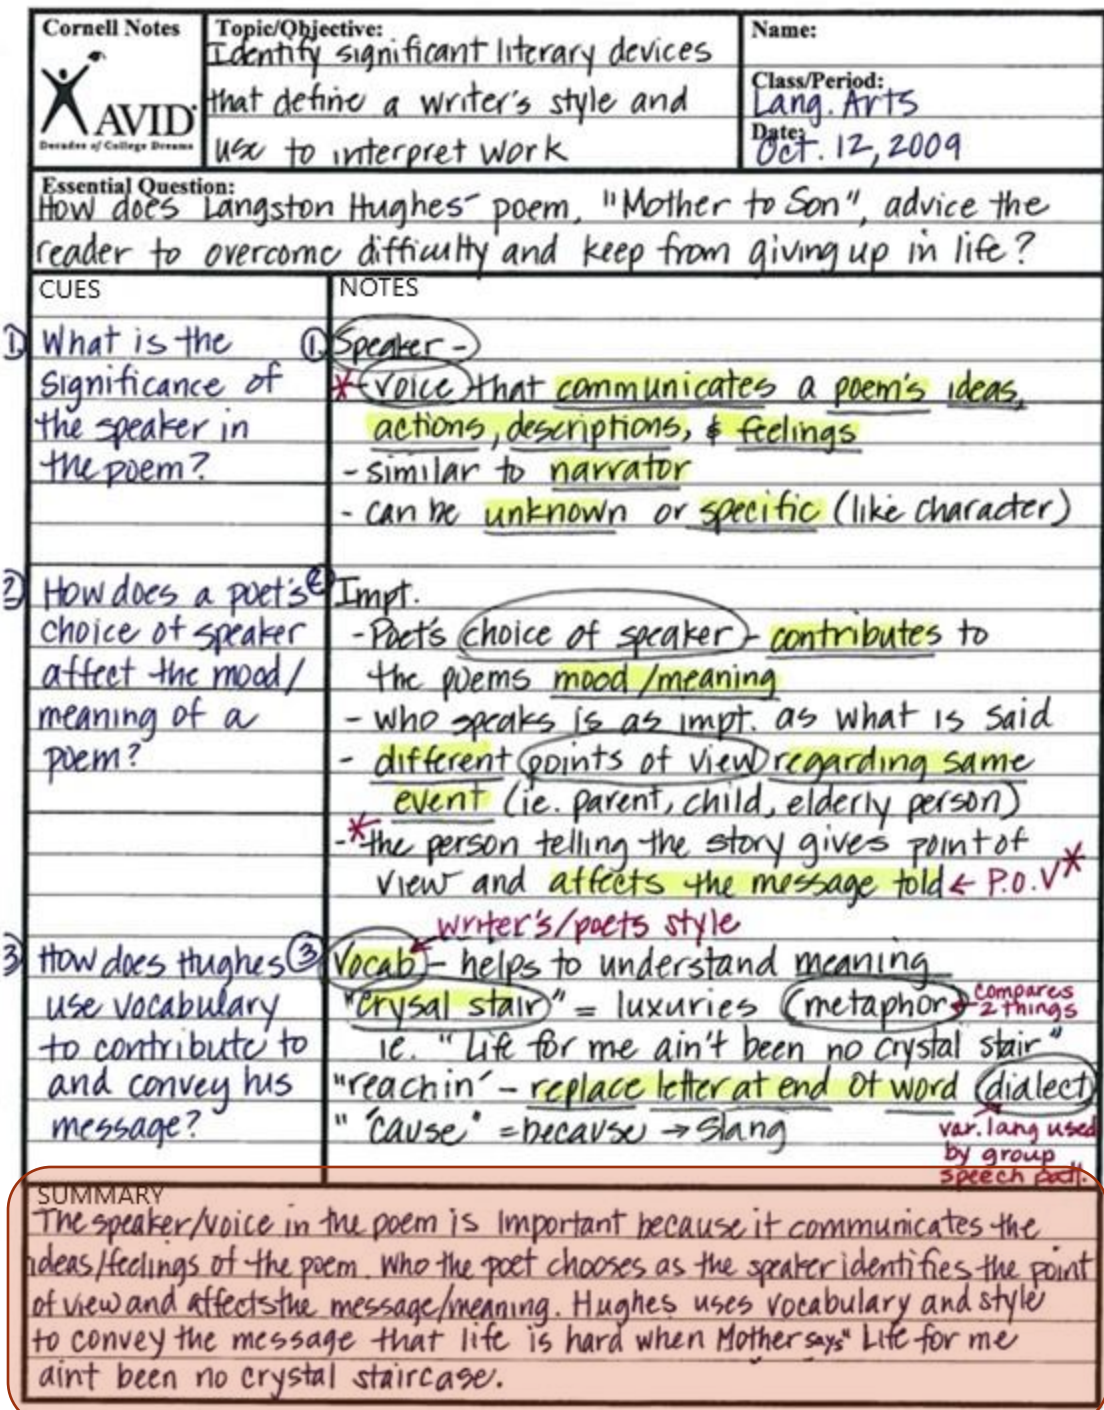 Cornell Notes
AVID
Decades of College Dreams
Topic/Objective:
Identify significant literary devices
that define a writer's style and
use to interpret work
Name:
Class/Period:
Lang. Arts
Date:
Oct. 12, 2009
Essential Question:
How does Langston Hughes' poem, "Mother to Son", advice the
reader to overcome difficulty and keep from giving up in life?
CUES
1. What is the
significance of
the speaker in
the poem?
2 How does a poet's
choice of speaker
affect the mood/
meaning of a
poem?
3 How does Hughes
use vocabulary
to contribute to
and convey his
message?
NOTES
1. Speaker -
* - voice that communicates a poem's ideas,
actions, descriptions, & feelings
- similar to narrator
- can be unknown or specific (like character)
2 Impt.
- Poet's choice of speaker - contributes to
the poems mood/meaning
- who speaks is as impt. as what is said
- different points of view regarding same
event (ie. parent, child, elderly person)
- * the person telling the story gives point of
view and affects the message told ← P.O.V *
writer's/poets style
3 Vocab - helps to understand meaning
"crysal stair" = luxuries metaphor ← compares
2 things
ie. "Life for me ain't been no crystal stair"
"reachin' - replace letter at end of word dialect
" 'cause" = because → slang
var. lang used
by group
speech patt.
SUMMARY
The speaker/voice in the poem is important because it communicates the
ideas/feelings of the poem. Who the poet chooses as the speaker identifies the point
of view and affects the message/meaning. Hughes uses vocabulary and style
to convey the message that life is hard when Mother says "Life for me
aint been no crystal staircase.